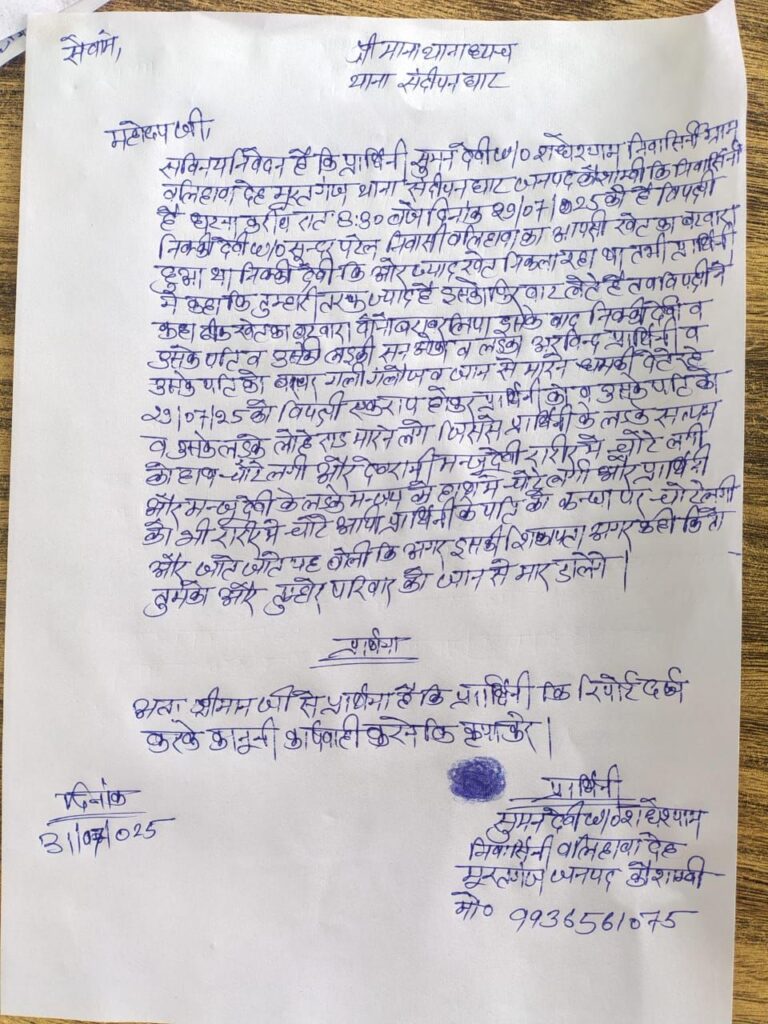 सेवामे,
श्री मान थानाध्यक्ष
थाना संदीपन घाट
महोदय जी,
सविनय निवेदन है कि प्रार्थिनी सुमन देवी W/O राधेश्याम निवासिनी ग्राम
वलिहावा देह मूरतगंज थाना संदीपन घाट जनपद कौशाम्बी कि निवासिनी
है घटना करीब रात 8:30 बजे दिनांक 29/07/2025 की है विपक्षी
निक्की देवी W/O सुन्दर पटेल निवासी वलिहावा का आपसी खेत का बटवारा
हुआ था निक्की देवी कि ओर ज्याद खेत निकला रहा था तभी प्रार्थिनी
ने कहा कि तुम्हारी तरफ ज्याद है इसको फिर बाट लेते है तब विपक्षी ने
कहा ठीक खेत का बटवारा दोनो बराबर लिया इसके बाद निक्की देवी व
उसके पति व उसकी लडकी व लडका अरविन्द प्रार्थिनी व
उसके पति को गाली गलौज व जान से मारने धमकी देते है
29/07/25 को विपक्षी एक राय होकर प्रार्थिनी को व उसके पति को
व उसके लडके लोहे राड मारने लगे जिससे प्रार्थिनी के लडके सत्यम
को हाथ चोटे लगी और देवरानी मन्जू देवी शरीर मे चोटे लगी
और मन्जू देवी के लडके के हाथ मे चोटे लगी और प्रार्थिनी
को भी शरीर मे चोटे आयी प्रार्थिनी के पति को कन्धा पर चोटे लगी
और जाते जाते यह बोली कि अगर इसकी शिकायत अगर कही कि तो
तुमको और तुम्हारे परिवार को जान से मार डालेगे |
प्रार्थना
अतः श्रीमान जी से प्रार्थना है कि प्रार्थिनी कि रिपोर्ट दर्ज
करके कानूनी कार्यवाही करने कि कृपा करे |
दिनांक
31/07/025
प्रार्थिनी
सुमन देवी W/O राधेश्याम
निवासिनी वलिहावा देह
मूरतगंज जनपद कौशाम्बी
मो० 9936561075